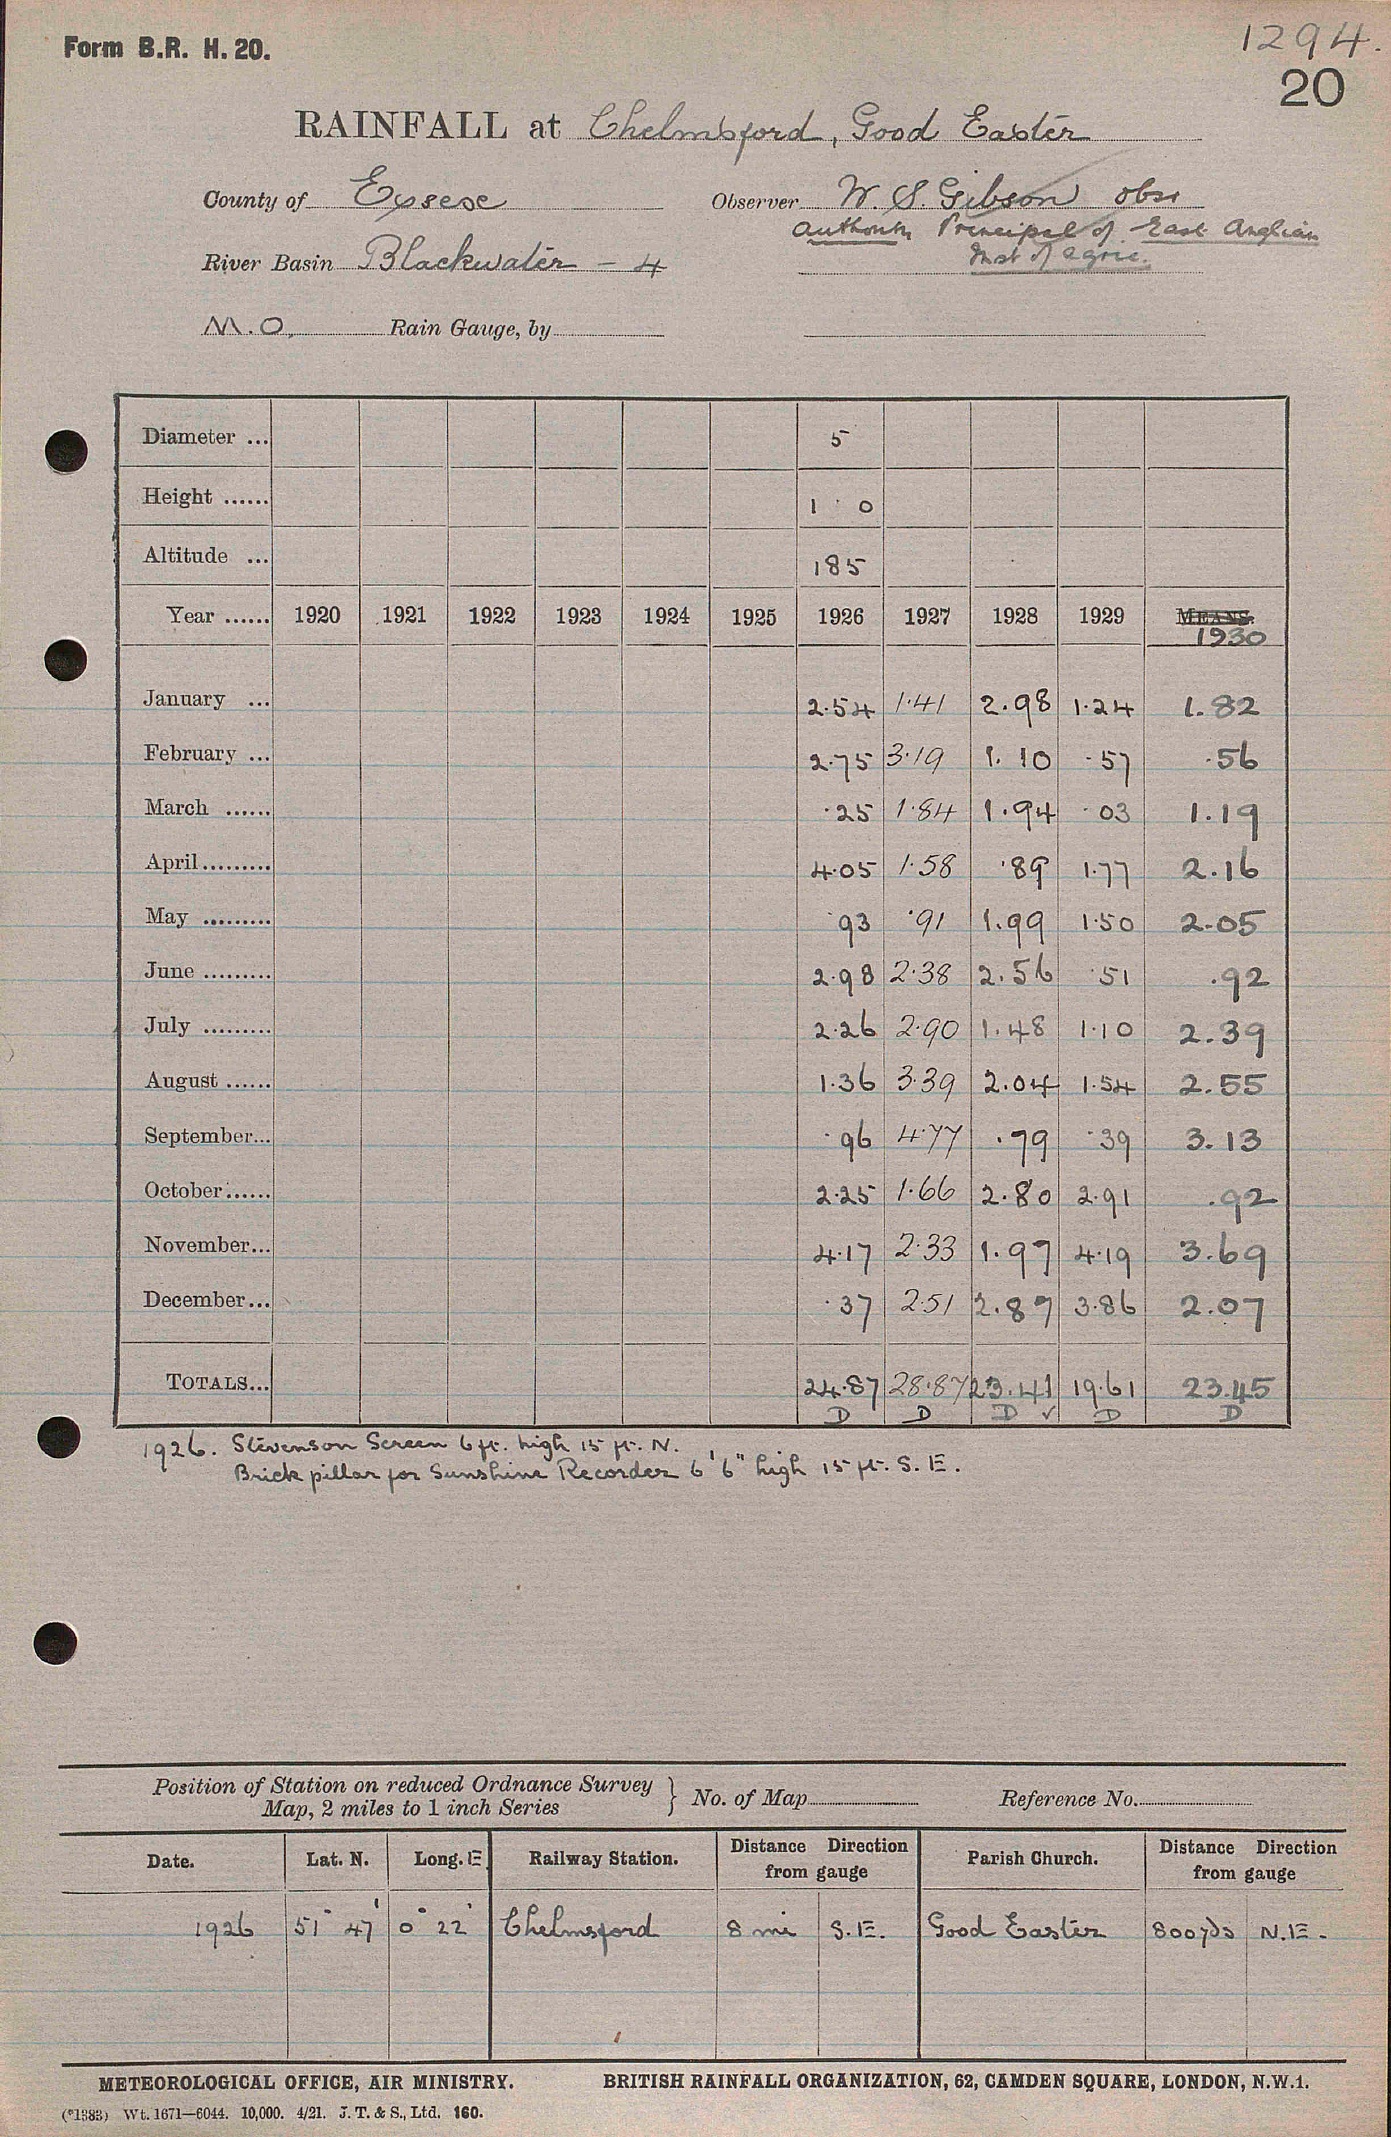 Form B.R. H. 20.
1294.
20
RAINFALL at Chelmsford, Good Easter
County of Essex Observer W. S. Gibson obsr
authority Principal of East Anglian
River Basin Blackwater - 4 Inst of agric.
M.O. Rain Gauge, by
Diameter ... 5
Height ...... 1 0
Altitude ... 185
Year ...... 1920 1921 1922 1923 1924 1925 1926 1927 1928 1929 MEANS.
1930
January ... 2.54 1.41 2.98 1.24 1.82
February ... 2.75 3.19 1.10 .57 .56
March ...... .25 1.84 1.94 .03 1.19
April ......... 4.05 1.58 .89 1.77 2.16
May ......... .93 .91 1.99 1.50 2.05
June ......... 2.98 2.38 2.56 .51 .92
July ......... 2.26 2.90 1.48 1.10 2.39
August ...... 1.36 3.39 2.04 1.54 2.55
September... .96 4.77 .79 .39 3.13
October ...... 2.25 1.66 2.80 2.91 .92
November... 4.17 2.33 1.97 4.19 3.69
December... .37 2.51 2.87 3.86 2.07
TOTALS... 24.87 28.87 23.41 19.61 23.45
D D D ✓ D D
1926. Stevenson Screen 6 ft. high 15 ft. N.
Brick pillar for Sunshine Recorder 6' 6" high 15 ft. S. E.
Position of Station on reduced Ordnance Survey
Map, 2 miles to 1 inch Series } No. of Map Reference No.
Date. Lat. N. Long. E. Railway Station. Distance Direction from gauge Parish Church. Distance Direction from gauge
1926 51° 47' 0° 22' Chelmsford 8 mi S.E. Good Easter 800 yds N.E.
METEOROLOGICAL OFFICE, AIR MINISTRY. BRITISH RAINFALL ORGANIZATION, 62, CAMDEN SQUARE, LONDON, N.W.1.
(*1383) Wt. 1671—6044. 10,000. 4/21. J. T. & S., Ltd. 160.